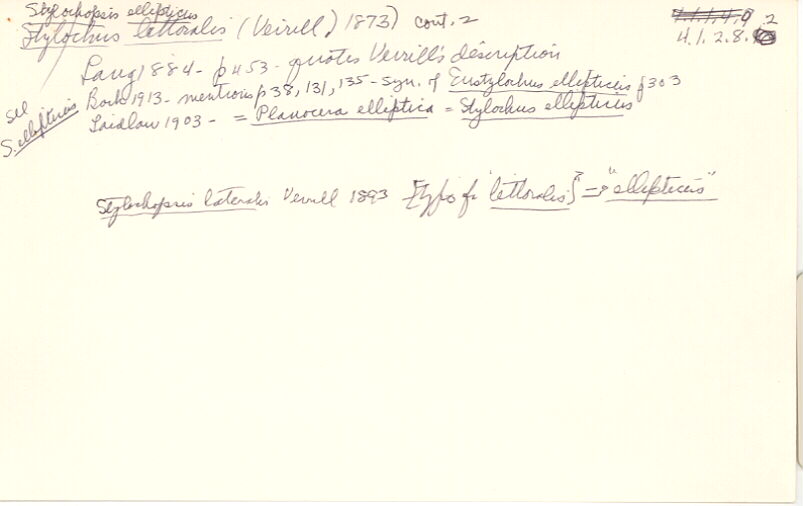 Stylochopsis ellipticus
Stylochus littoralis (Verrill, 1873) cont. 2
4.1.1.4.9 .2
4.1.2.8.
Lang 1884 - p 453 - quotes Verrill's description
Bock 1913 - mentions p 38, 131, 135 - syn. of Eustylochus ellipticus p 303
Laidlaw 1903 - = Planocera elliptica = Stylochus ellipticus
see
S. ellipticus
Stylochopsis lateralis Verrill 1893 [typo for "littoralis] ? → "ellipticus"